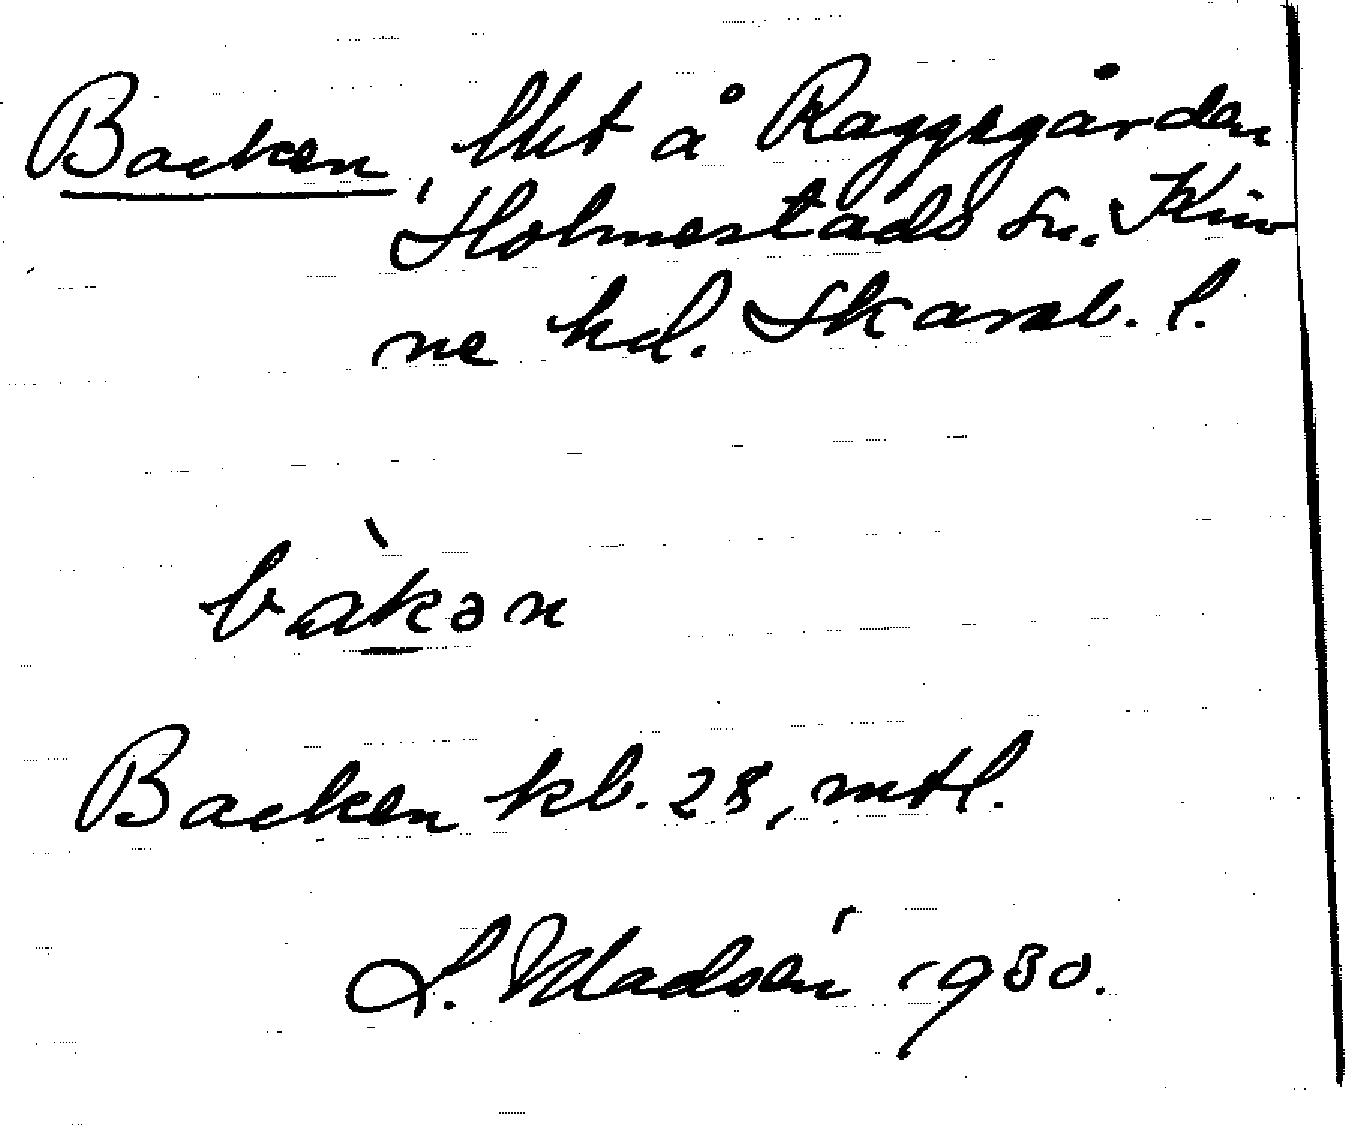 Backen, lht å Raggegården
Holmestads sn. Kin
ne hd. Skarab. l.
bàkən
Backen kb. 28, mtl.
L. Madsén 1930.